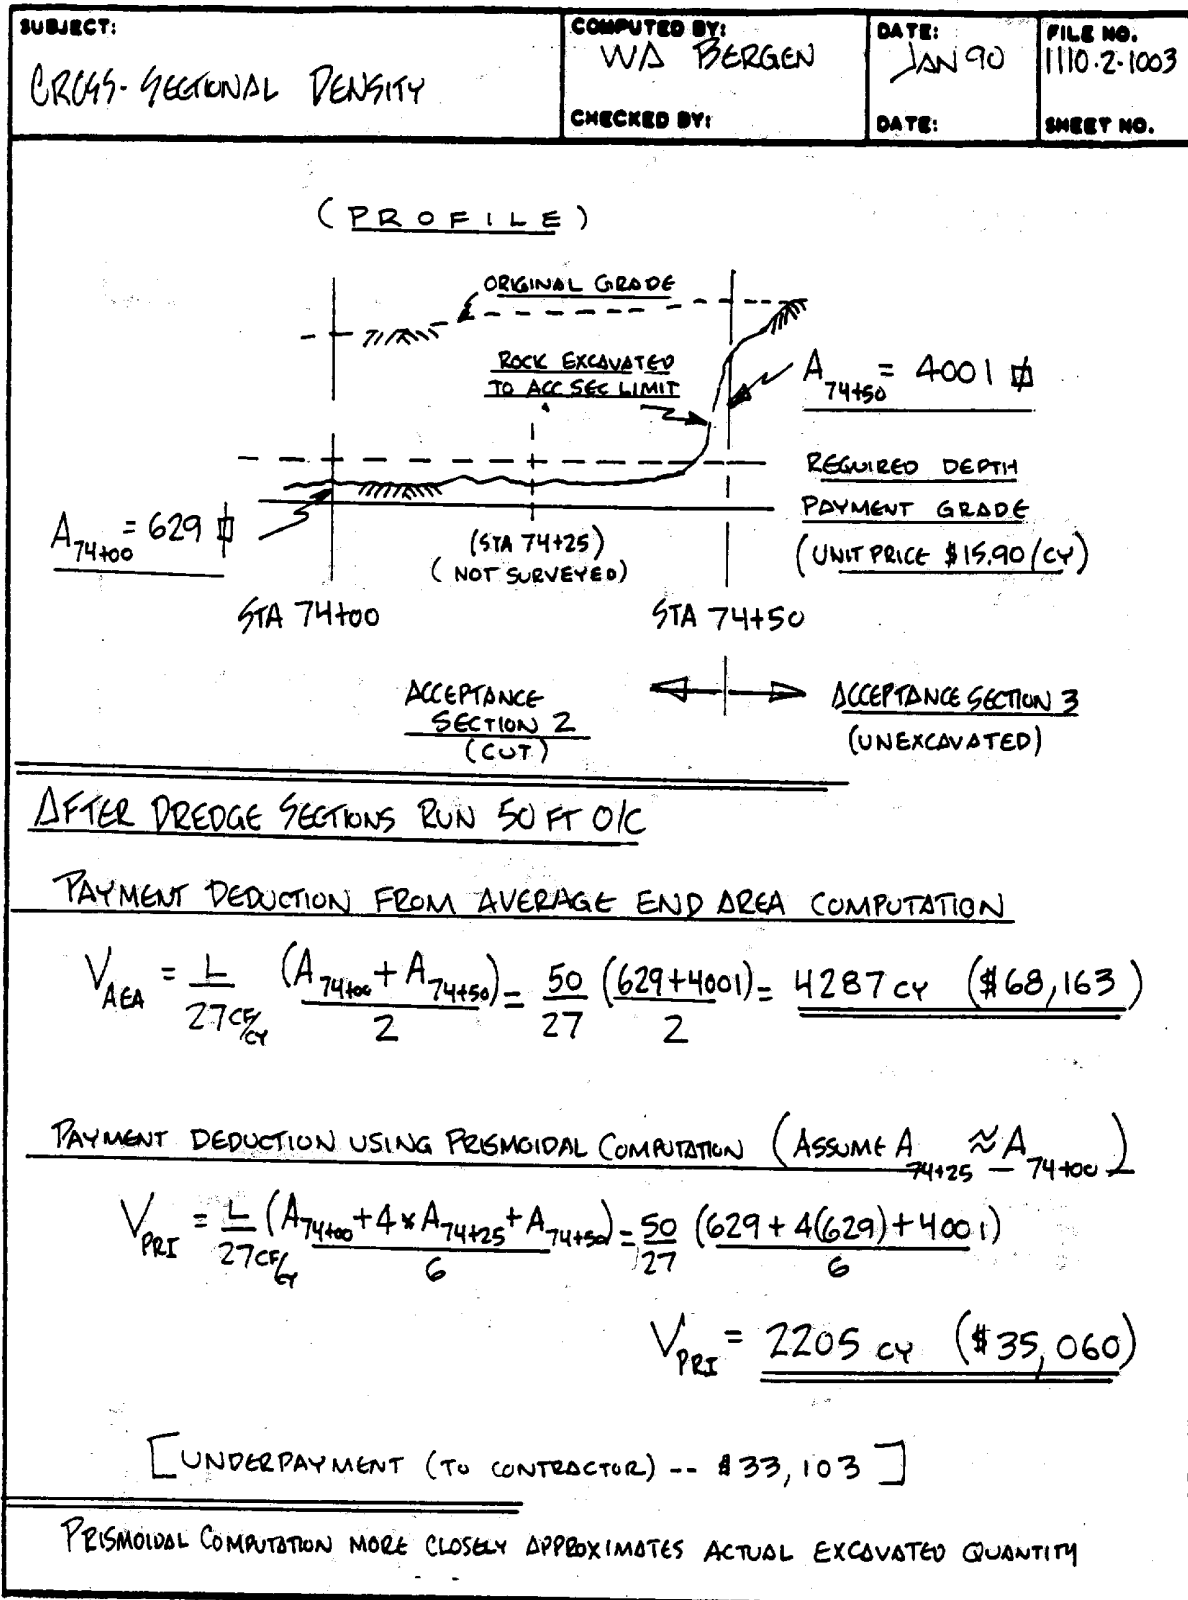 SUBJECT:
CROSS-SECTIONAL DENSITY
COMPUTED BY:
WA BERGEN
CHECKED BY:
DATE:
JAN 90
DATE:
FILE NO.
1110-2-1003
SHEET NO.
(PROFILE)
ORIGINAL GRADE
ROCK EXCAVATED
TO ACC SEC LIMIT
A74+50 = 4001 ⏍
REQUIRED DEPTH
PAYMENT GRADE
(UNIT PRICE $15.90/CY)
A74+00 = 629 ⏍
(STA 74+25)
(NOT SURVEYED)
STA 74+00
STA 74+50
ACCEPTANCE
SECTION 2
(CUT)
ACCEPTANCE SECTION 3
(UNEXCAVATED)
AFTER DREDGE SECTIONS RUN 50 FT O/C
PAYMENT DEDUCTION FROM AVERAGE END AREA COMPUTATION
VAEA = L/27 CF/CY (A74+00 + A74+50)/2 = 50/27 (629+4001)/2 = 4287 CY ($68,163)
PAYMENT DEDUCTION USING PRISMOIDAL COMPUTATION (ASSUME A74+25 ≈ A74+00)
VPRI = L/27 CF/CY (A74+00 + 4 × A74+25 + A74+50)/6 = 50/27 (629 + 4(629) + 4001)/6
VPRI = 2205 CY ($35,060)
[UNDERPAYMENT (TO CONTRACTOR) -- $33,103]
PRISMOIDAL COMPUTATION MORE CLOSELY APPROXIMATES ACTUAL EXCAVATED QUANTITY